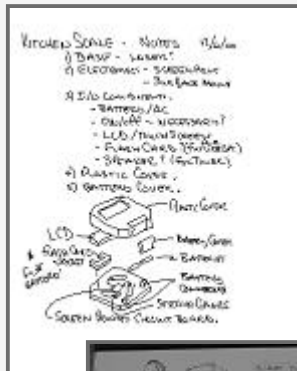 KITCHEN SCALE - NOTES
1) BASE -
2) ELECTRONICS - SCREEN PRINT
- SURFACE MOUNT
3) I/O COMPONENTS.
- BATTERY/AC
- ON/OFF - NECESSARY?
- LCD/TOUCHSCREEN
- FLASH CARD (FUTURE)
- SPEAKER? (FUTURE)
4) PLASTIC COVER.
5) BATTERY COVER.
PLASTIC COVER
LCD
BATTERY COVER
FLASH CARD
SOCKET
BATTERY
BATTERY
STRAIN GAUGE
SCREEN PRINTED CIRCUIT BOARD.